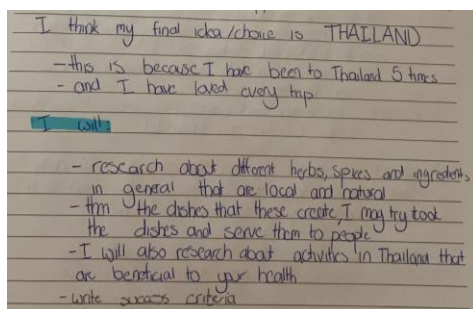 I think my final idea/choice is THAILAND
- this is because I have been to Thailand 5 times
- and I have loved every trip
I will:
- research about different herbs, spices and ingredients
in general that are local and natural
- then the dishes that these create, I may try to cook
the dishes and serve them to people
- I will also research about activities in Thailand that
are beneficial to your health
- write success criteria